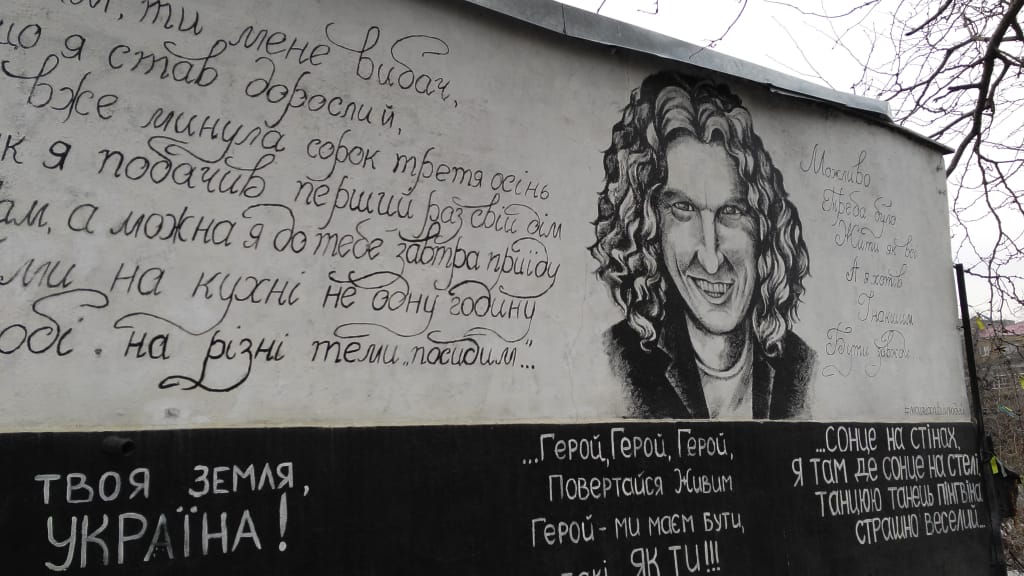 , ти мене вибач,
що я став дорослий,
вже минула сорок третя осінь
як я побачив перший раз свій дім
ам, а можна я до тебе завтра приїду
ми на кухні не одну годину
обі. на різні теми "посидим"...
Можливо
Треба було
Жити як всі
А я хотів
Інакшим
Бути завжди...
ТВОЯ ЗЕМЛЯ,
УКРАЇНА!
...Герой, Герой, Герой,
Повертайся Живим
Герой - ми маєм бути,
такі ЯК ТИ!!!
...СОНЦЕ НА СТІНАХ
Я ТАМ ДЕ СОНЦЕ НА СТЕЛІ
ТАНЦЮЮ ТАНЕЦЬ ПІНГВІНА
СТРАШНО ВЕСЕЛИЙ...